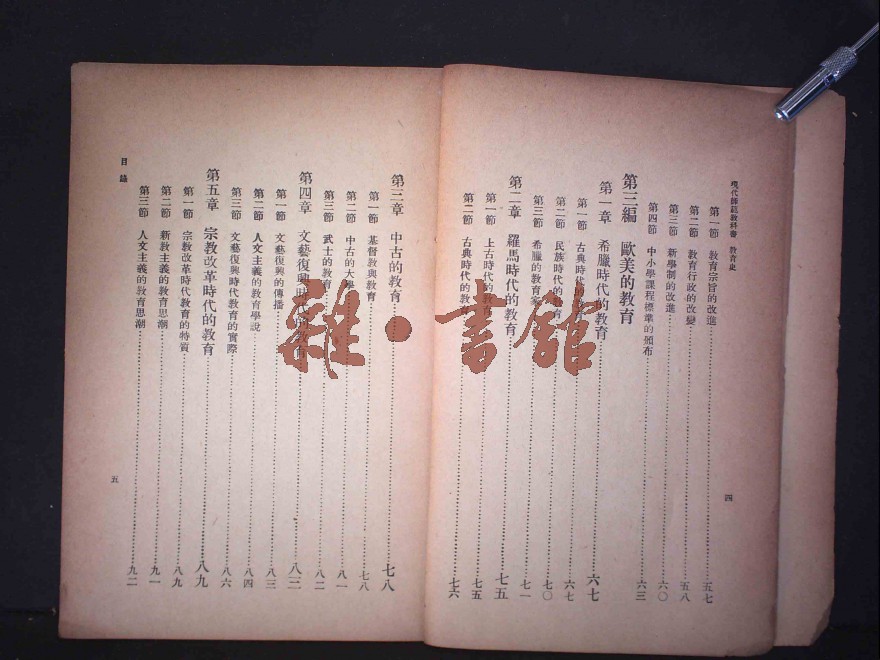 現代師範教科書 教育史
第一節 教育宗旨的改進 五七
第二節 教育行政的改變 五八
第三節 新學制的改進 六〇
第四節 中小學課程標準的頒布 六三
第三編 歐美的教育
第一章 希臘時代的教育 六七
第一節 古典時代的教育 六七
第二節 民族時代的教育 七〇
第三節 希臘的教育 七一
第二章 羅馬時代的教育 七五
第一節 上古時代的教育 七五
第二節 古典時代的教 七六
四
第三章 中古的教育 七八
第一節 基督教與教育 七八
第二節 中古的大學 八一
第三節 武士的教育 八二
第四章 文藝復興時代的教育 八三
第一節 文藝復興的傳播 八三
第二節 人文主義的教育學說 八四
第三節 文藝復興時代教育的實際 八六
第五章 宗教改革時代的教育 八九
第一節 宗教改革時代教育的特質 八九
第二節 新教主義的教育思潮 九一
第三節 人文主義的教育思潮 九二
目錄
五
雜·書館